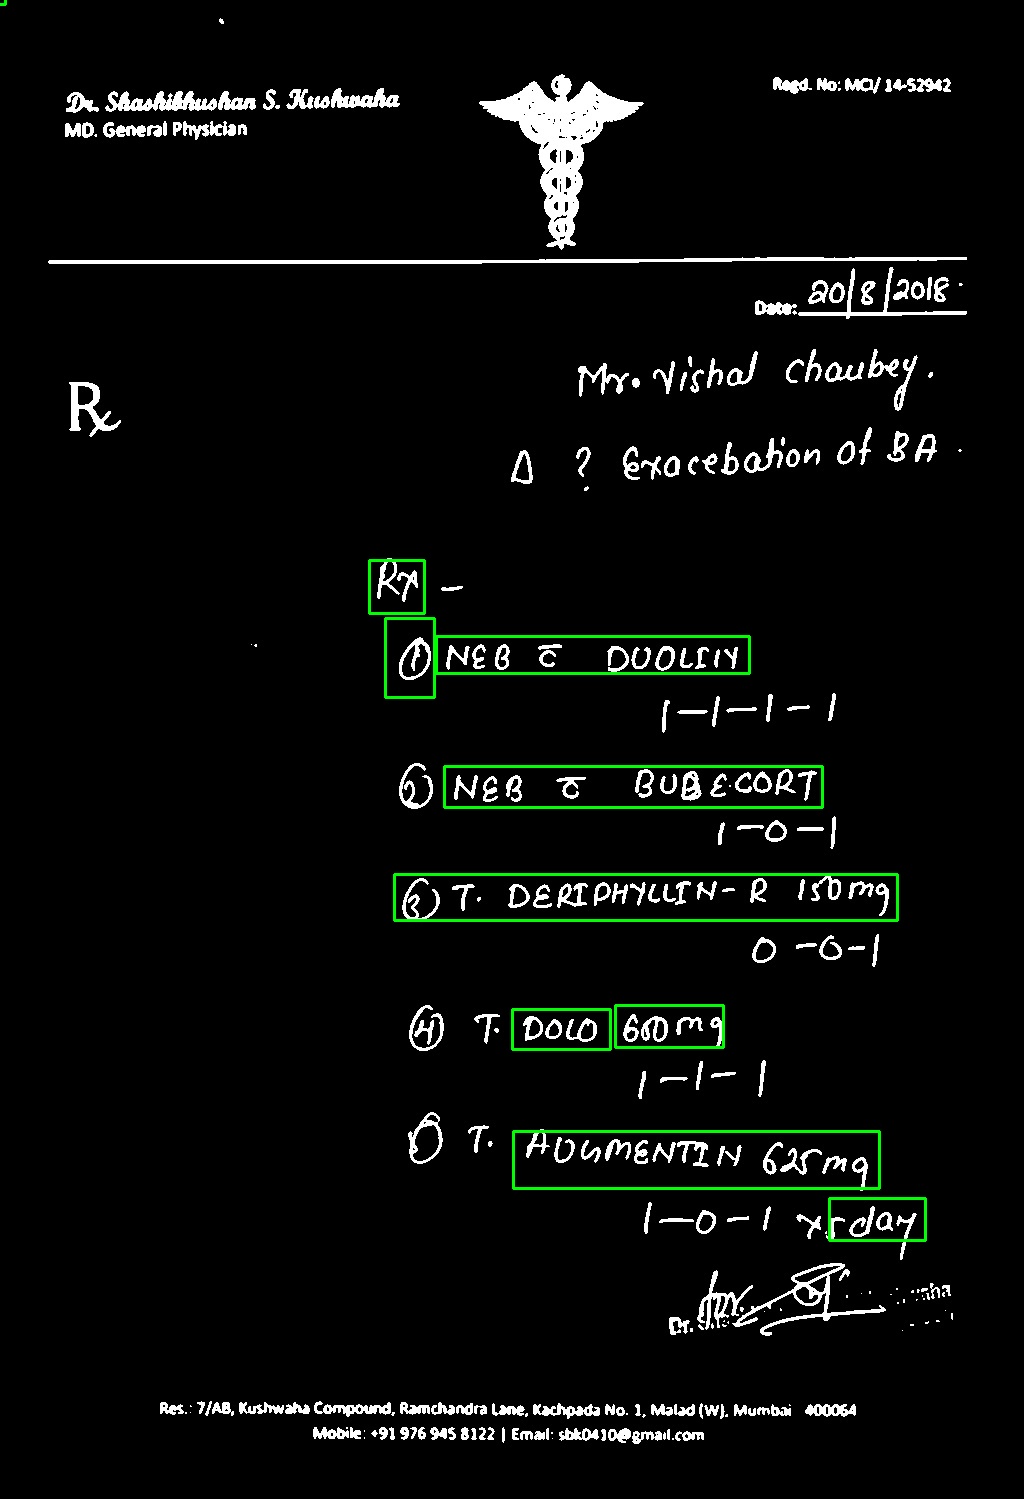 Dr. Shashibhushan S. Kushwaha
MD. General Physician
Regd. No: MCI/ 14-52942
Date: 20/8/2018.
Rx
Mr. Vishal Chaubey.
Δ ? Exacebation of BA.
Rx -
① NEB c̅ DUOLIN
1-1-1-1
② NEB c̅ BUDECORT
1-0-1
③ T. DERIPHYLLIN-R 150mg
0-0-1
④ T. DOLO 650mg
1-1-1
⑤ T. AUGMENTIN 625mg
1-0-1 x 5 day
Dr.
Res.: 7/AB, Kushwaha Compound, Ramchandra Lane, Kachpada No. 1, Malad (W), Mumbai 400064
Mobile: +91 976 945 8122 | Email: sbk0410@gmail.com